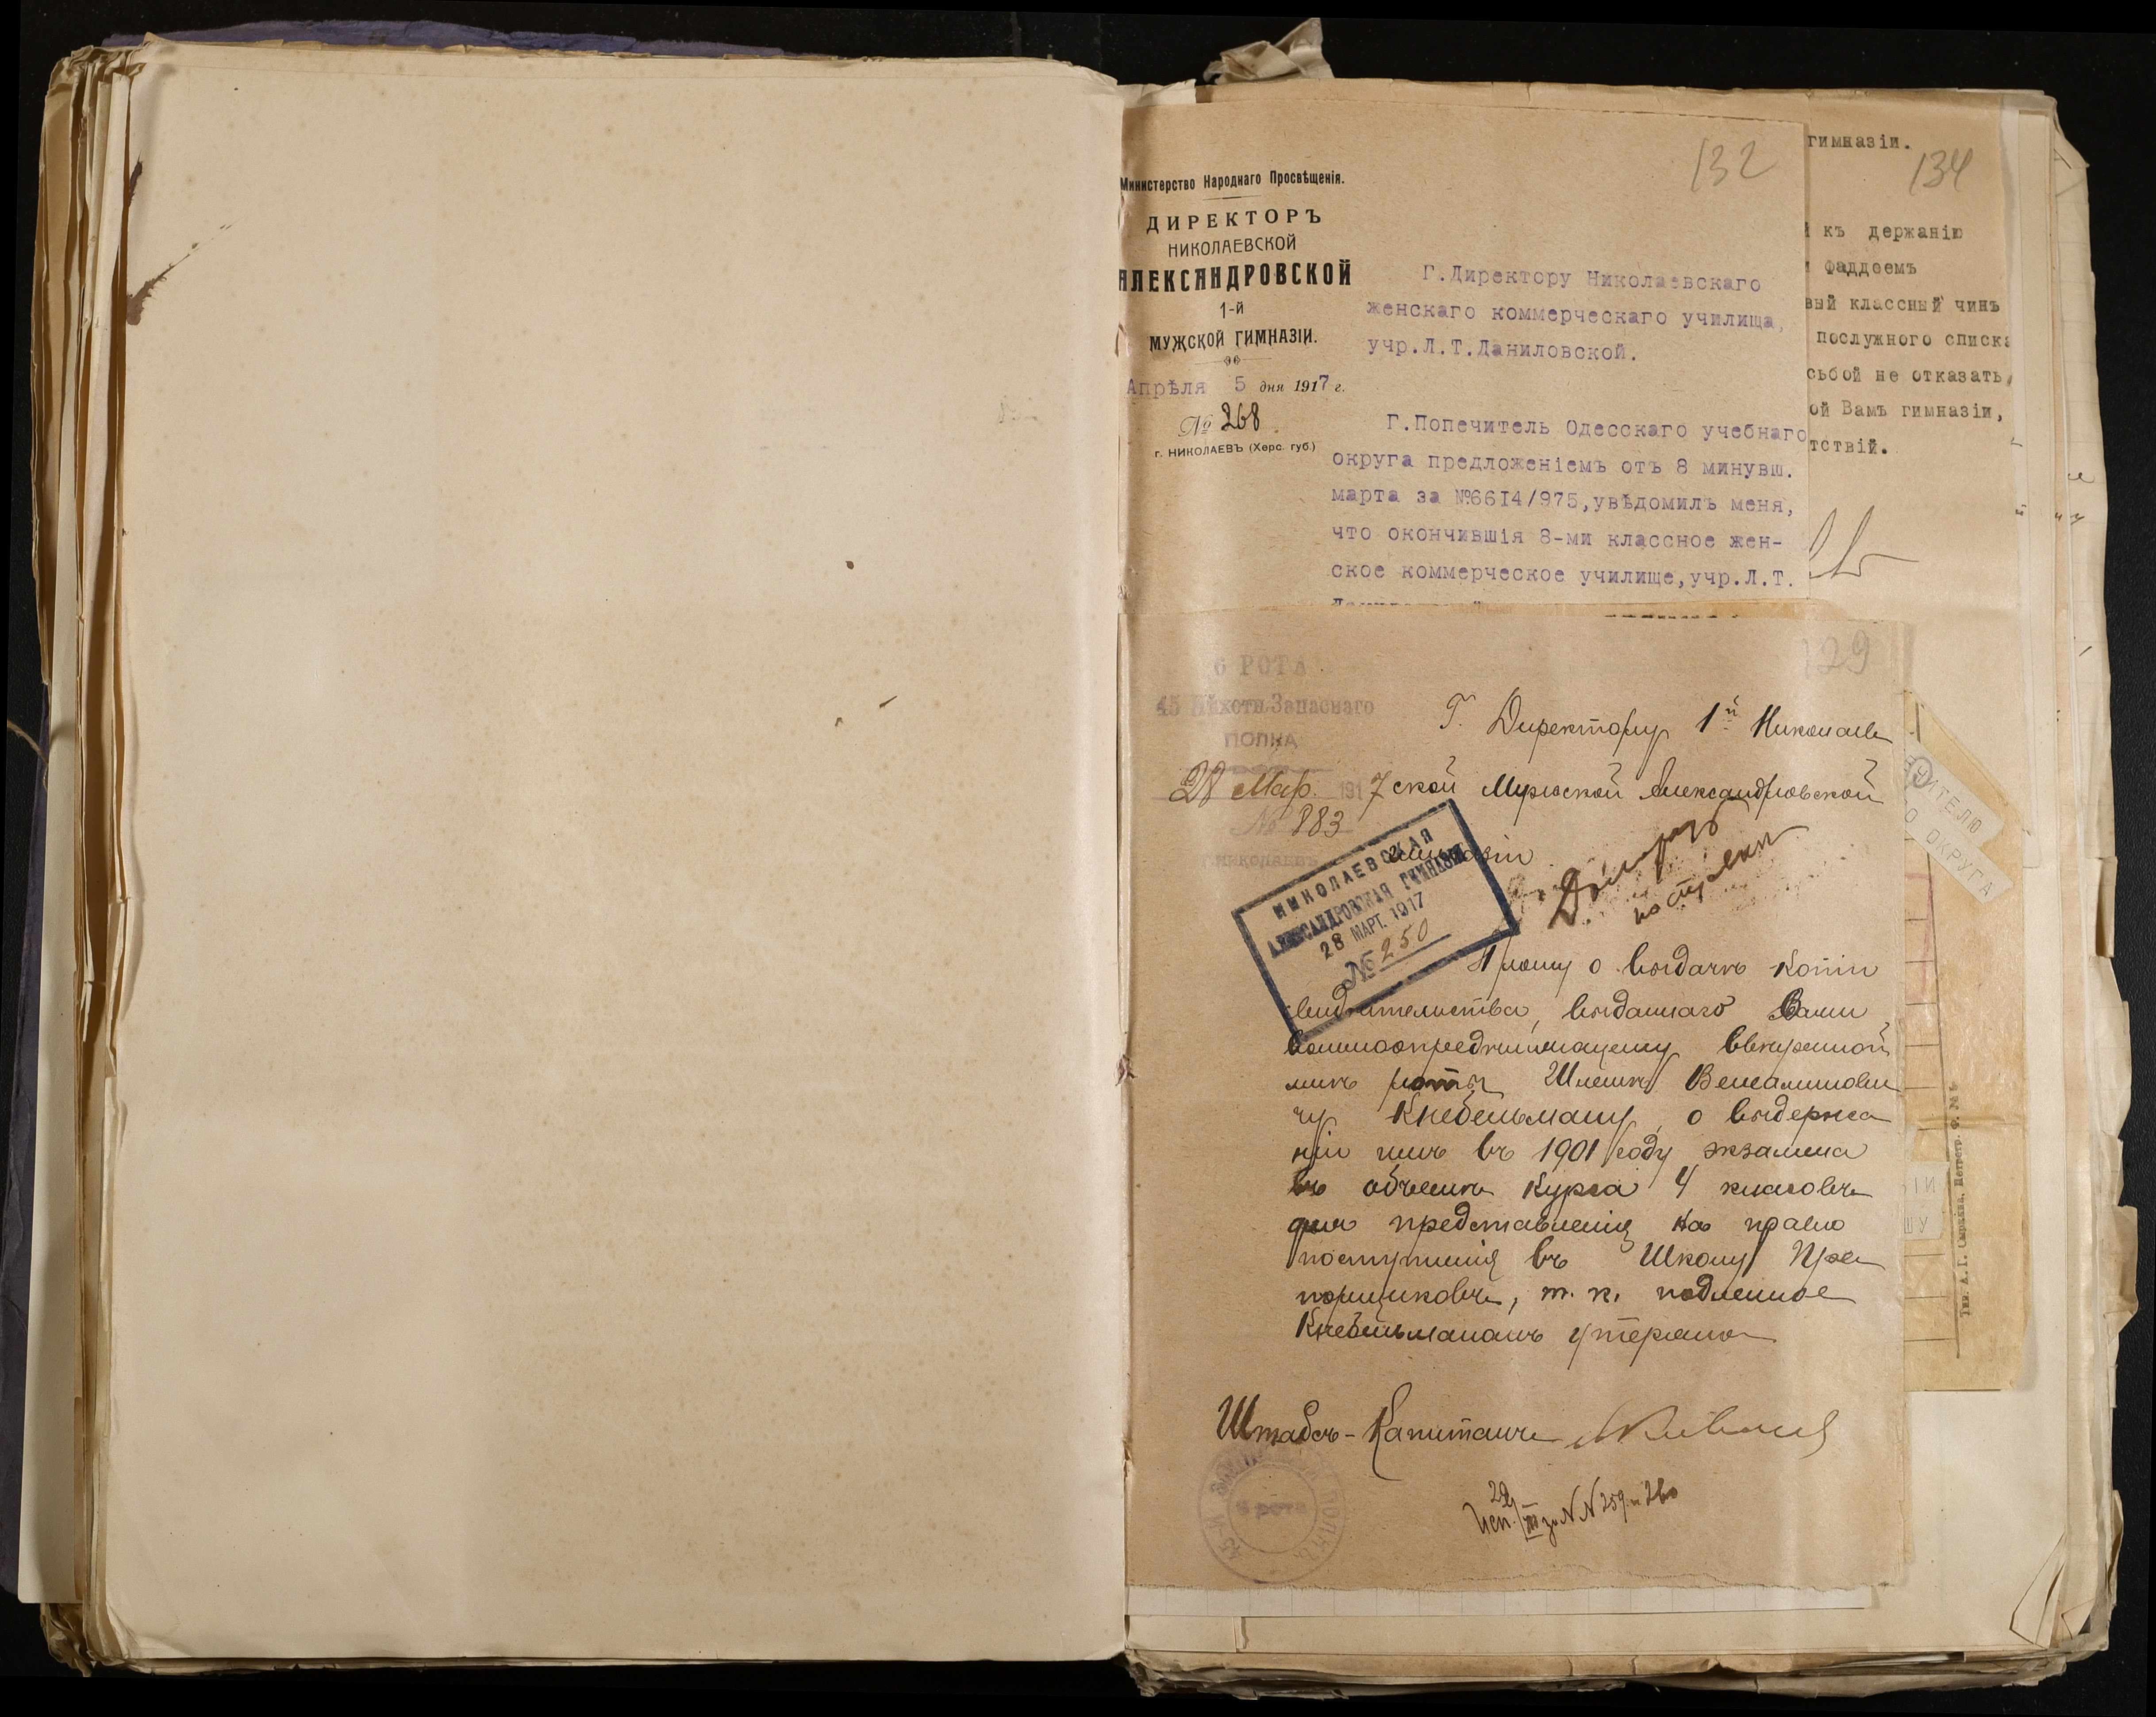 132
Министерство Народнаго Просвѣщенія.
ДИРЕКТОРЪ
НИКОЛАЕВСКОЙ
АЛЕКСАНДРОВСКОЙ
1-й
МУЖСКОЙ ГИМНАЗІИ.
Апрѣля 5 дня 1917 г.
№ 268
г. НИКОЛАЕВЪ (Херс. губ.)
Г.Директору Николаевскаго
женскаго коммерческаго училища,
учр.Л.Т.Даниловской.
Г.Попечитель Одесскаго учебнаго
округа предложеніемъ отъ 8 минувш.
марта за №6614/975,увѣдомилъ меня,
что окончившія 8-ми классное жен-
ское коммерческое училище,учр.Л.Т.
гимназіи.
134
къ держанію
Фаддеемъ
вый классный чинъ
послужного списка
сьбой не отказать,
ой Вамъ гимназіи,
тствій.
129
6 РОТА
45 Пѣхотн. Запаснаго
ПОЛКА
28 Мар. 1917
№ 883
НИКОЛАЕВЪ
Г. Директору 1й Николаев
ской Мужской Александровской
гимназіи
НИКОЛАЕВСКАЯ
АЛЕКСАНДРОВСКАЯ ГИМНАЗІЯ
28 МАРТ. 1917
№ 250
Прошу о выдачѣ копіи
свидѣтельства, выданнаго Вами
вольноопредѣляющемуся ввѣренной
мнѣ роты Шлемѣ Веніаминови
чу Кнебельману, о выдержа
ніи имъ въ 1901 году экзамена
въ объемѣ курса 4 класовъ
для представленія на право
поступленія въ Школу Пра
порщиковъ, т. к. подленное
Кнебельманомъ утеряно
Штабсъ-Капитанъ
Исп. 29/III за NN 259 и 260
6 РОТА
ИТЕЛЮ
О ОКРУГА